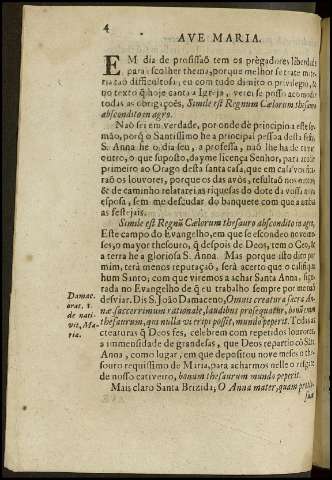 4
AVE MARIA.
EM dia de profissaõ tem os prègadores liberdade
para escolher thema, porque melhor se trate
taõ difficultosa; eu com tudo dimito o privilegio, &
no texto q̃ hoje canta a Igreja, verei se posso acomodar
todas as obrigaçoẽs, Simile est Regnum Cælorum thesauro
abscondito in agro.
Naõ sei em verdade, por onde dè principio a este ser-
maõ, porq̃ o Santissimo he a principal pessoa desta festa,
S. Anna he o dia seu, a professa, naõ lhe ha de tirar
outro, o que suposto, dayme licença Senhor, para acodir
primeiro ao Orago desta santa casa, que em casa vos fica-
raõ os louvores, porque os das avós, resultaõ nos netos,
& de caminho relatarei as riquesas do dote da vossa nova
esposa, sem me descudar do banquete com que a ambas
as festejais.
Simile est Regnũ Cælorum thesauro abscondito in agro,
Este campo do Evangelho, em que se escondeo nove me-
ses, o mayor thesouro, q̃ despois de Deos, tem o Ceo, &
a terra he a gloriosa S. Anna. Mas porque isto dito por
mim, terá menos reputaçaõ, serà acerto que o califique
hum Santo; com que viremos a achar Santa Anna, figu-
rada no Evangelho de q̃ eu trabalho sempre por me naõ
desviar. Dis S. Joaõ Damaceno, Omnis creatura sacra An-
næ sacerrimum rationale, laudibus prosequatur, bonũ enim
thesaurum, qui nulla vi eripi possit, mundo peperit. Todas as
creaturas q̃ Deos fes, celebrem com repetidos louvores
a immensidade de grandesas, que Deos repartio cõ Sãta
Anna, como lugar, em que depositou nove meses o the-
souro riquissimo de Maria, para acharmos nelle o resgate
de nosso cativeiro, bonum thesaurum mundo peperit.
Mais claro Santa Brizida; O Anna mater, quam
sua
Damac.
orat. 1.
de nati-
vit. Ma-
ria.